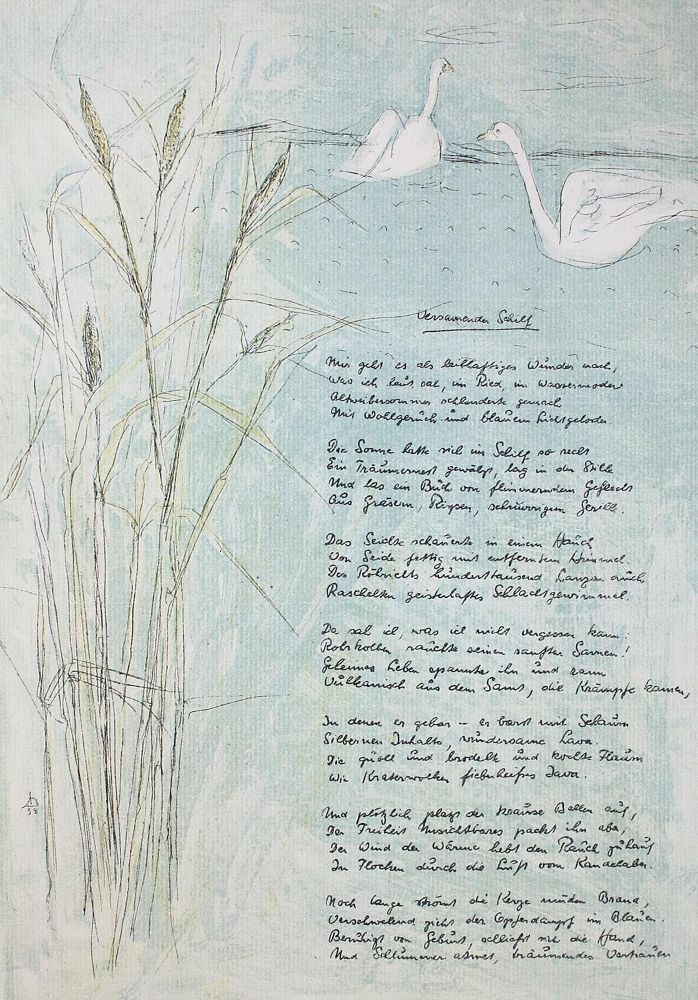 Versamender Schilf
Mir geht es als leibhaftiges Wunder nach,
Was ich heut sah, im Ried, im Wassermoder
Altweibersommer schlenderte gemach
Mit Wohlgeruch und blauem Lichtgeloder
Die Sonne hatte sich im Schilf so recht
Ein Träumernest gewählt, lag in der Stille
Und las ein Buch von flimmerndem Geflecht
Aus Gräsern, Rispen, schwirrigem
Das Seichte schauerte in einem Hauch
Von Seide fettig mit entferntem Himmel.
Des Röhrichts hunderttausend Lanzen auch
Raschelten geisterhaftes Schlachtgewimmel.
Da sah ich, was ich nicht vergessen kann:
Rohrkolben rauchte seinen sanften Samen!
Geheimes Leben spannte ihn und rann
Vulkanisch aus dem Samt, die Krämpfe kamen,
In denen er gebar – es barst mit Schaum
Silbernen Inhalts, wundersame Lava.
Die quoll und brodelte und kochte Flaum
Wie Kraterwolken fieberheißes Java.
Und plötzlich platzt der krause Ballen auf,
Der Freiheit Unsichtbares packt ihn aber,
Der Wind der Wärme hebt den Rauch zuhauf
In Flocken durch die Luft vom Kandelaber.
Noch lange strömt die Kerze müden Brand,
Verschwelend zieht der Opferdampf im Blauen.
Beruhigt von Geburt, schließt sich die Hand,
Und Schlummer atmet, träumendes Vertrauen
58